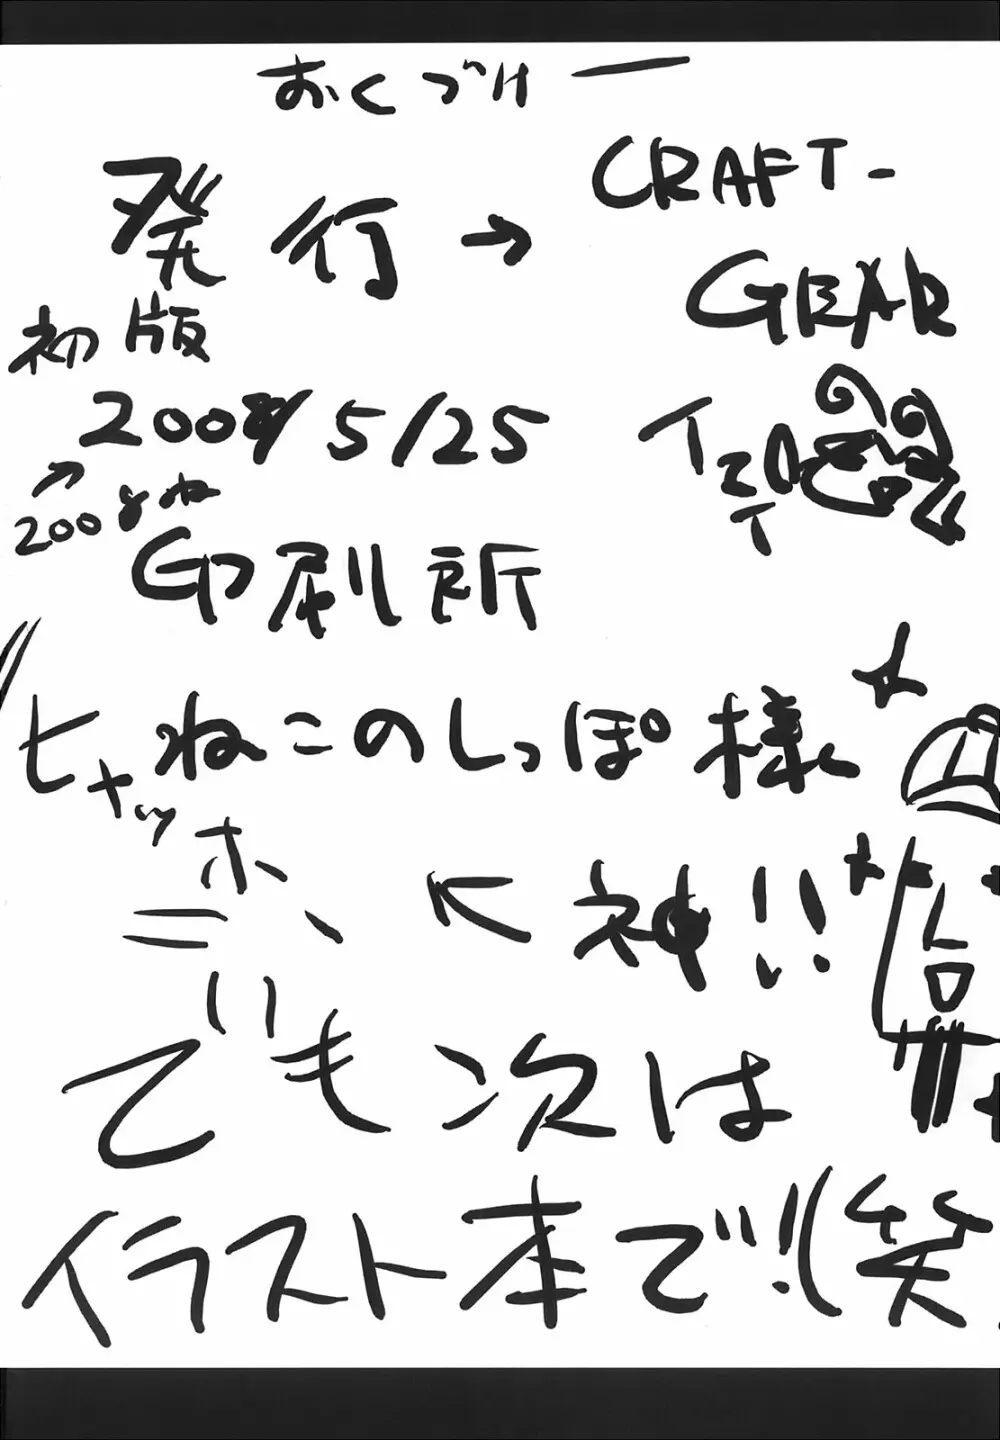 おくづけー
発行→ CRAFT-
GEAR
初版
2008/5/25
↑
2008ね
印刷所
ねこのしっぽ様
ヒャッホ
神!!
でも次は
イラスト本で!!(笑